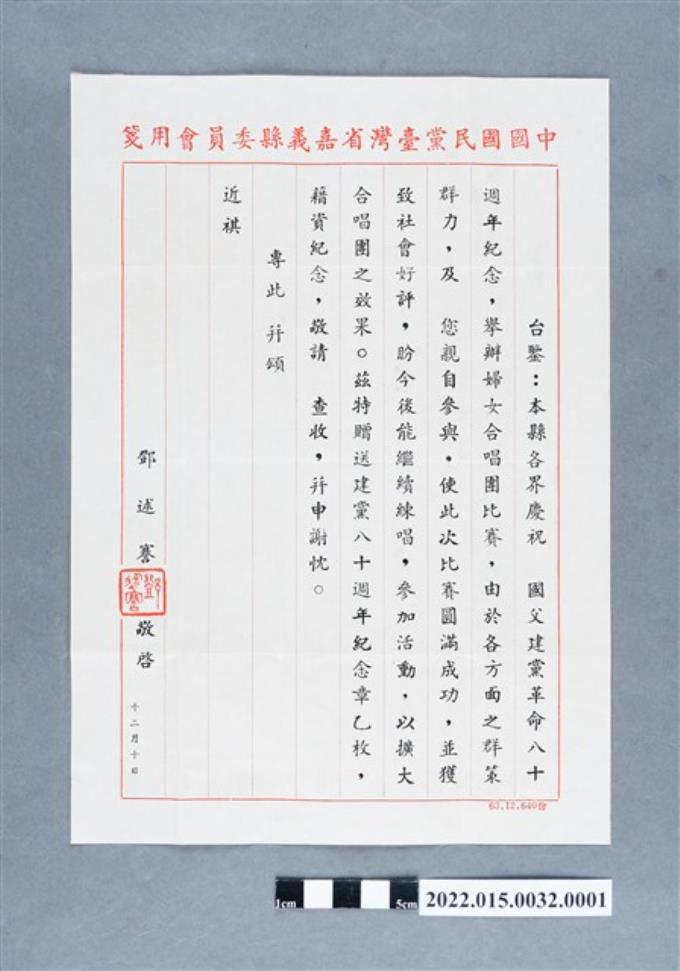 中國國民黨臺灣省嘉義縣委員會用箋
台鑒：本縣各界慶祝　國父建黨革命八十
週年紀念，舉辦婦女合唱團比賽，由於各方面之群策
群力，及　您親自參與，使此次比賽圓滿成功，並獲
致社會好評，盼今後能繼續練唱，參加活動，以擴大
合唱團之效果。茲特贈送建黨八十週年紀念章乙枚，
藉資紀念，敬請　查收，幷申謝忱。
專此　幷頌
近祺
鄧述謇　敬啓　十二月十日
63.12.640份
1cm 5cm
2022.015.0032.0001